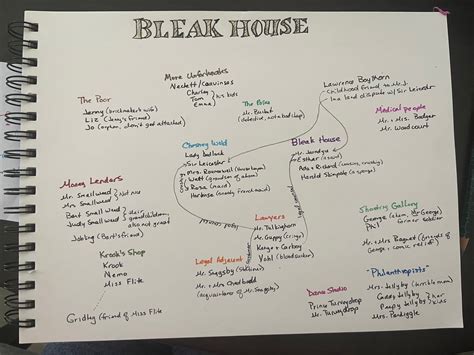 BLEAK HOUSE
More Unfortunates
Neckett/Coavinses
Charley
Tom
Emma
his kids
The Poor
Jenny (brickmaker's wife)
Liz (Jenny's friend)
Jo (orphan, don't get attached)
The Police
Mr. Bucket
(detective, not a bad chap)
Lawrence Boythorn
Childhood friend to Mr. J
in a land dispute w/ Sir Leicester
Medical people
Mr. + Mrs. Badger
Mr. Woodcourt
Chesney Wold
Lady Dedlock
Sir Leicester
Mrs. Rouncewell (housekeeper)
Watt (grandson of above)
Rosa (maid)
Hortense (angry French maid)
Bleak House
Mr. Jarndyce
Esther
Ada + Richard (cousins, crushy)
Harold Skimpole
Money Lenders
Mr. Smallweed
Mrs. Smallweed
Not nice
Bart Smallweed
Judy Smallweed
grandchildren,
also not great
Jobling (Bart's friend)
Lawyers
Mr. Tulkinghorn
Mr. Guppy (cringe)
Kenge + Carboy
Vohl (bloodsucker)
Shooting Gallery
George
Phil
Mr. + Mrs. Bagnet (friends of
George + comic relief)
Krook's Shop
Krook
Nemo
Miss Flite
Gridley (friend of Miss Flite)
Legal Adjacent
Mr. Snagsby
Mr. + Mrs. Chadband
(acquaintances of Mr. Snagsby)
Dance Studio
Prince Turveydrop
Mr. Turveydrop
"Philanthropists"
Mrs. Jellyby (terrible mom)
Caddy Jellyby
Peepy Jellyby
her kids
Mrs. Pardiggle